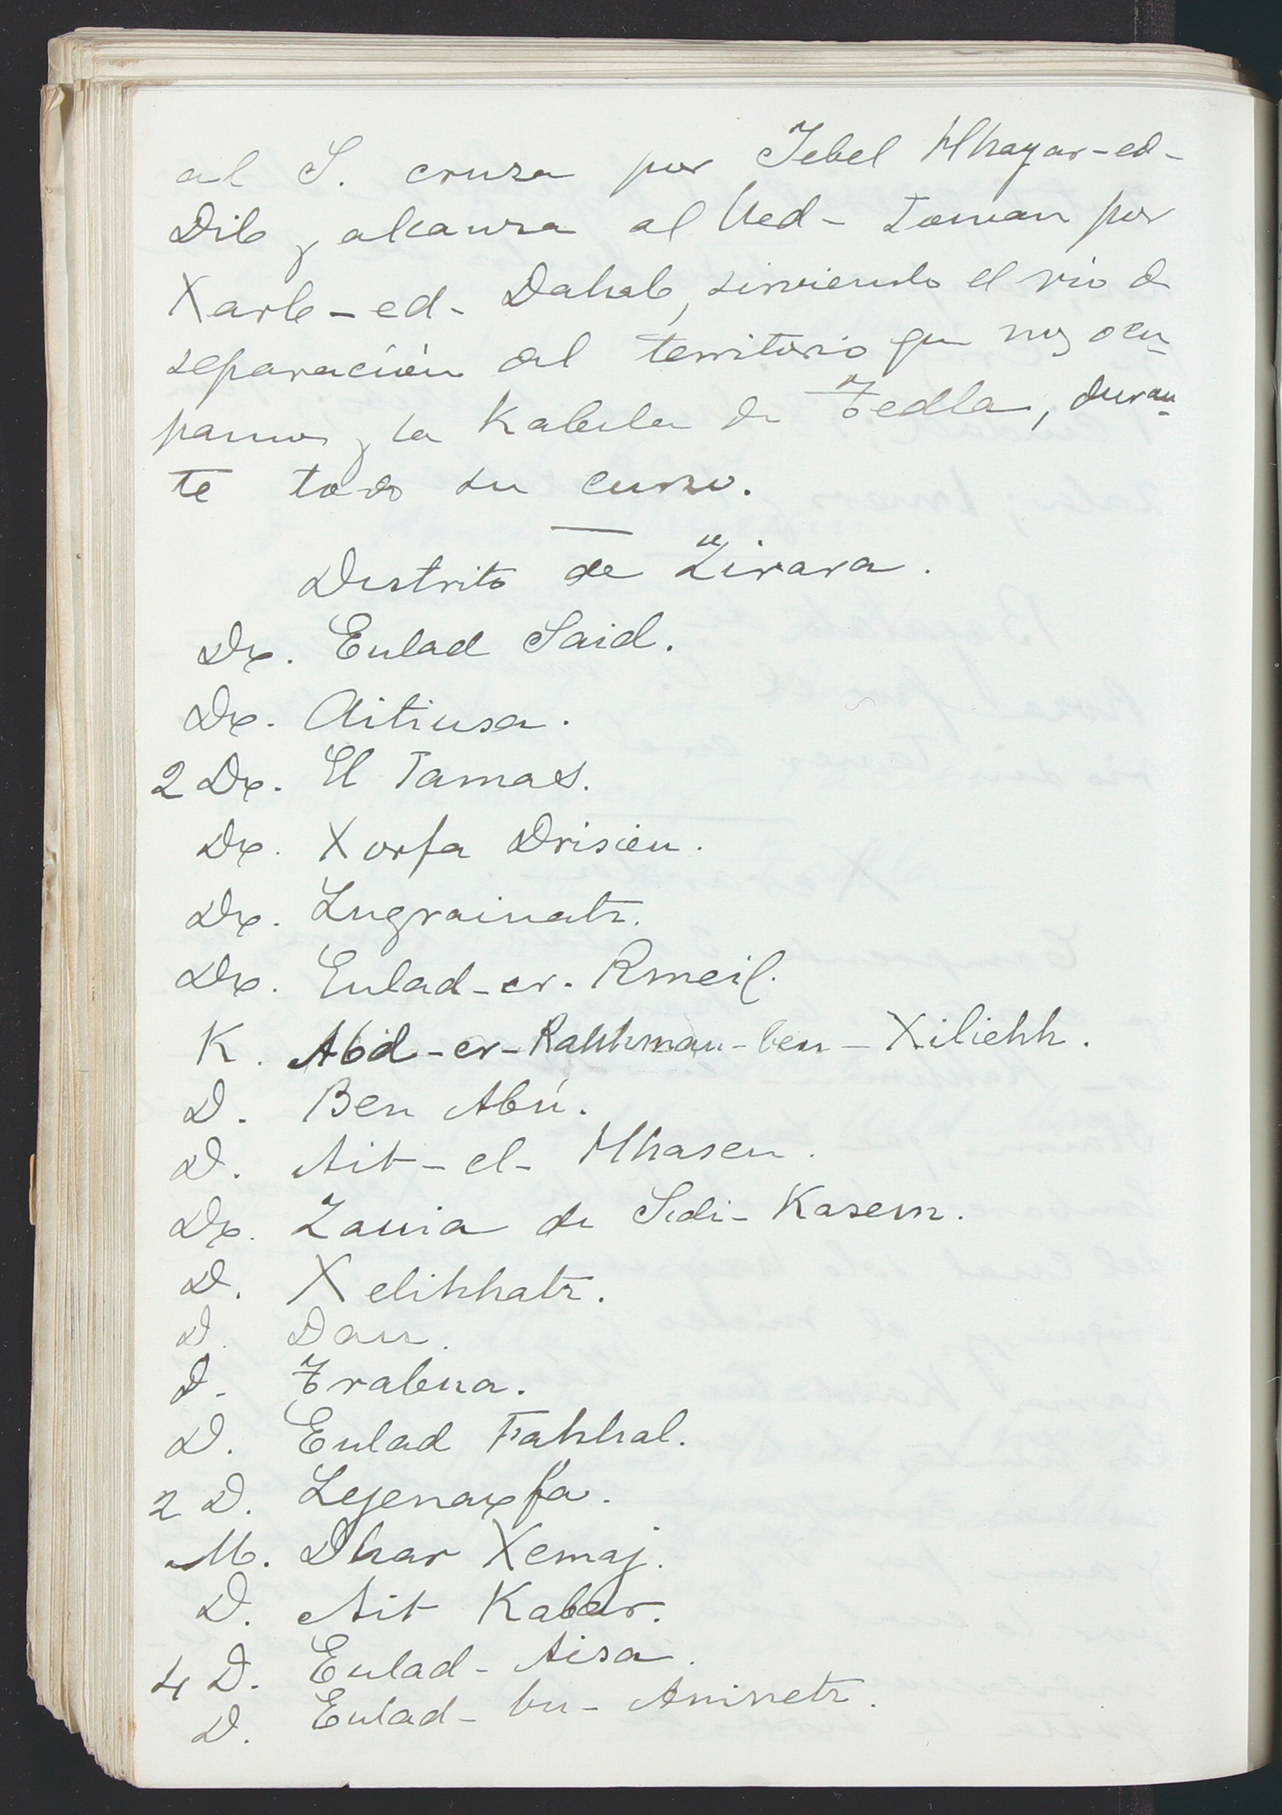 al S. cruza por Jebel Hhayar-ed-
Dib y alcanza al Ued- Touan por
Xarb-ed- Dahab, sirviendo el rio de
separación del territorio que nos ocu-
pamos y la Kabila de Tedla, duran-
te todo su curso.
Distrito de Zirara.
Dx. Eulad Said.
Dx. Aitiusa.
2 Dx. El Tamas.
Dx. Xorfa Drisien.
Dx. Zugrainatz.
Dx. Eulad-er-Rmeil.
K. Abd-er-Rahhman-ben-Xiliehh.
D. Ben Abú.
D. Ait-el- Hhasen.
Dx. Zauia de Sidi-Kasem.
D. Xelihhatz.
D. Dau.
D. Trabua.
D. Eulad Fahhal.
2 D. Lejenaxfa.
M. Dhar Xemaj.
D. Ait Kabar.
4 D. Eulad- Aisa.
D. Eulad- bu- Aninetz.